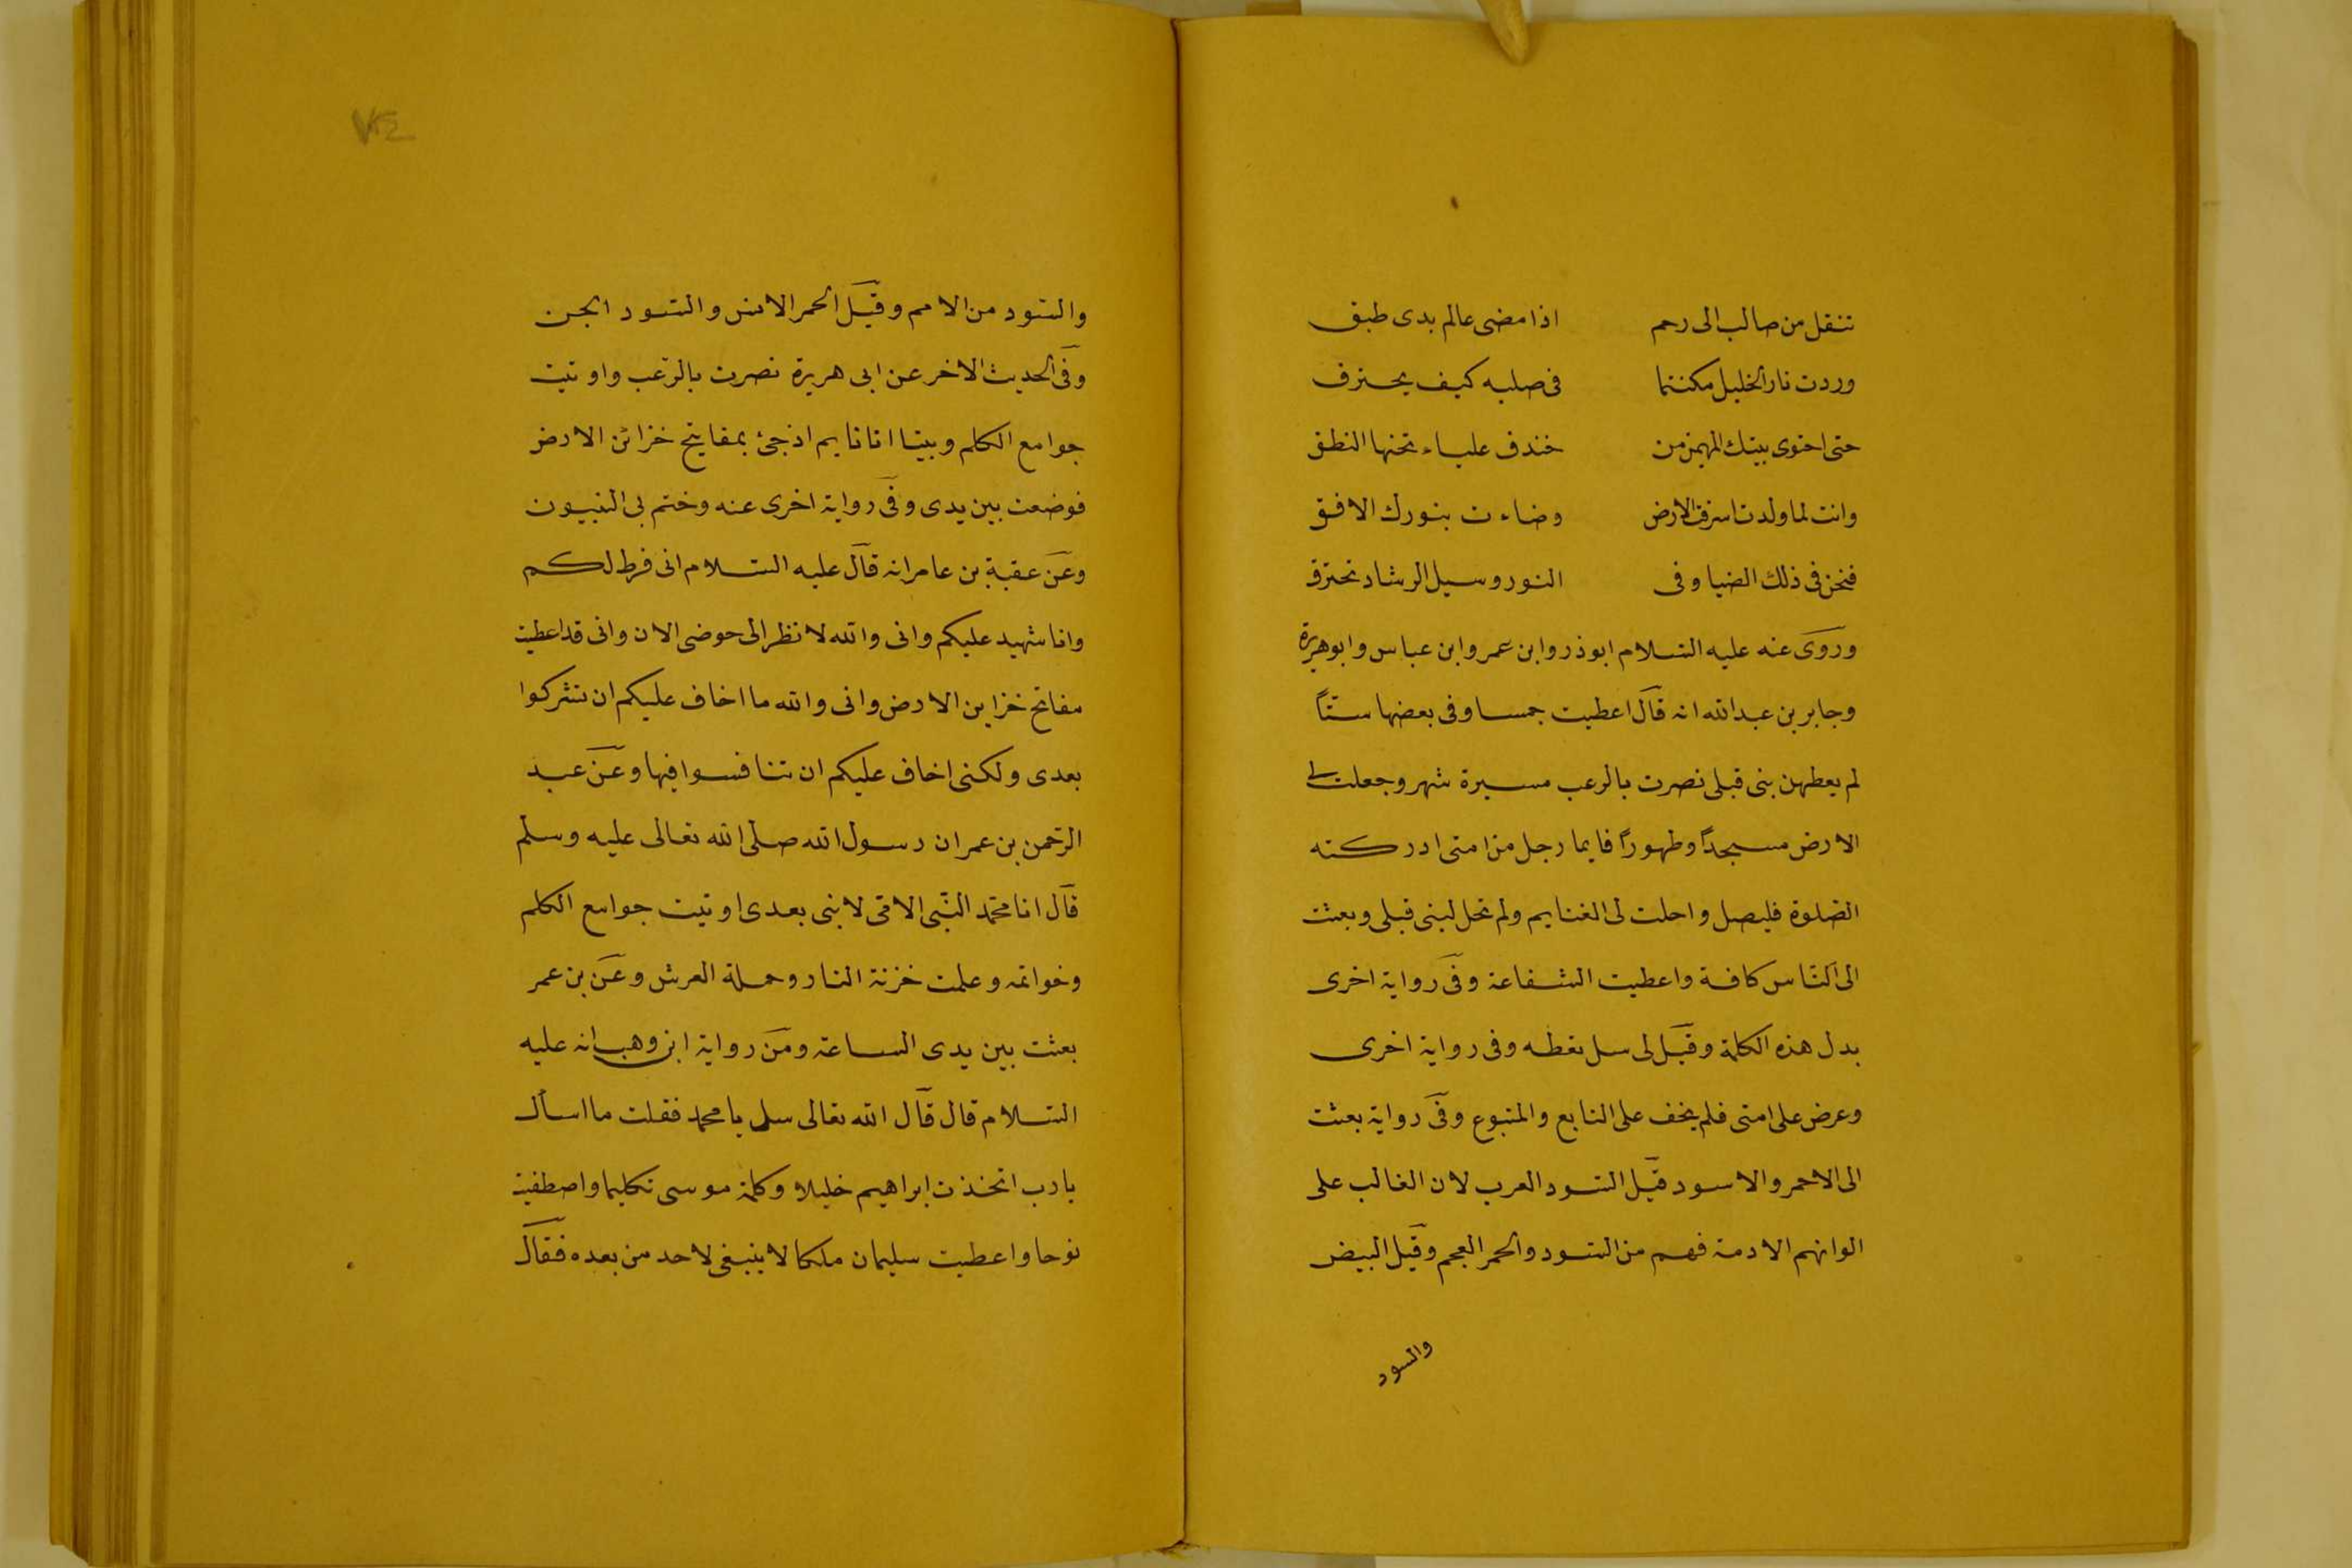 تنقل من صالب الى رحم اذا مضى عالم بدى طبق
وردت نار الخليل مكتتما فى صلبه كيف يحترق
حتى احتوى بيتك المهيمن من خندف علياء تحتها النطق
وانت لما ولدت اشرق الارض وضاءت بنورك الافق
فنحن فى ذلك الضيا وفى النور وسبل الرشاد نخترق
وروى عنه عليه السلام ابوذر وابن عمر وابن عباس وابوهريرة
وجابر بن عبدالله انه قال اعطيت خمسا وفى بعضها ستّاً
لم يعطهن نبى قبلى نصرت بالرعب مسيرة شهر وجعلت لى
الارض مسجداً وطهوراً فايما رجل من امتى ادركته
الصلوة فليصل واحلت لى الغنايم ولم تحل لنبى قبلى وبعثت
الى النّاس كافة واعطيت الشفاعة وفى رواية اخرى
بدل هذه الكلمة وقيل لى سل تعطه وفى رواية اخرى
وعرض على امتى فلم يخف على التابع والمتبوع وفى رواية بعثت
الى الاحمر والاسود قيل السود العرب لان الغالب على
الوانهم الادمة فهم من السود والحمر العجم وقيل البيض
والسود
٧٣٤
والسّود من الامم وقيل الحمر الانس والسّود الجن
وفى الحديث الاخر عن ابى هريرة نصرت بالرّعب واوتيت
جوامع الكلم وبينا انا نايم اذ جئ بمفاتيح خزائن الارض
فوضعت بين يدى وفى رواية اخرى عنه وختم بى النبيون
وعن عقبة بن عامر انه قال عليه السلام انى فرط لكم
وانا شهيد عليكم وانى والله لانظر الى حوضى الان وانى قد اعطيت
مفاتح خزاين الارض وانى والله ما اخاف عليكم ان تشركوا
بعدى ولكنى اخاف عليكم ان تنافسوا فيها وعن عبد
الرّحمن بن عمر ان رسول الله صلى الله تعالى عليه وسلّم
قال انا محمّد النّبى الامّى لا نبى بعدى اوتيت جوامع الكلم
وخواتمه وعلمت خزنة النار وحملة العرش وعن بن عمر
بعثت بين يدى الساعة ومن رواية ابن وهب انه عليه
السّلام قال قال الله تعالى سل يا محمد فقلت ما اسأل
يا رب اتخذت ابراهيم خليلا وكلمة موسى تكليما واصطفيت
نوحا واعطيت سليمان ملكا لا ينبغى لاحد من بعده فقال